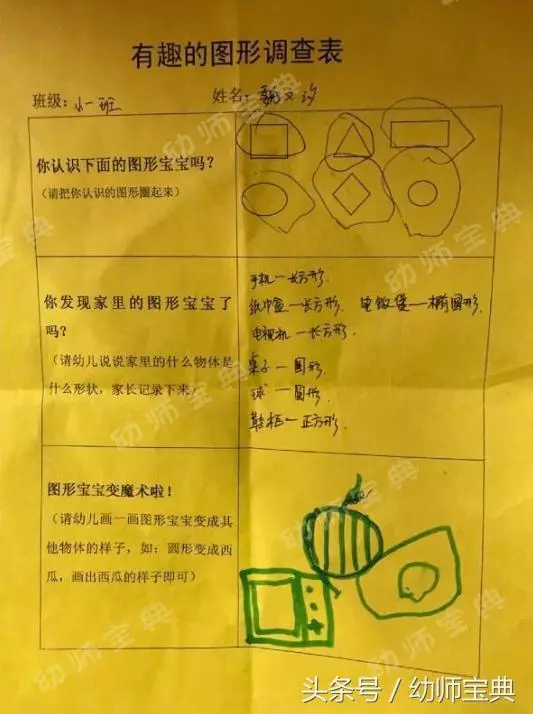 有趣的图形调查表
班级：小一班 姓名：魏又汐
你认识下面的图形宝宝吗？
（请把你认识的图形圈起来）
你发现家里的图形宝宝了
吗？
（请幼儿说说家里的什么物体是
什么形状，家长记录下来）
手机—长方形.
纸巾盒—长方形. 电饭煲—椭圆形.
电视机—长方形.
桌子—圆形.
球—圆形.
鞋柜—正方形.
图形宝宝变魔术啦！
（请幼儿画一画图形宝宝变成其
他物体的样子，如：圆形变成西
瓜，画出西瓜的样子即可）
幼师宝典
头条号 / 幼师宝典